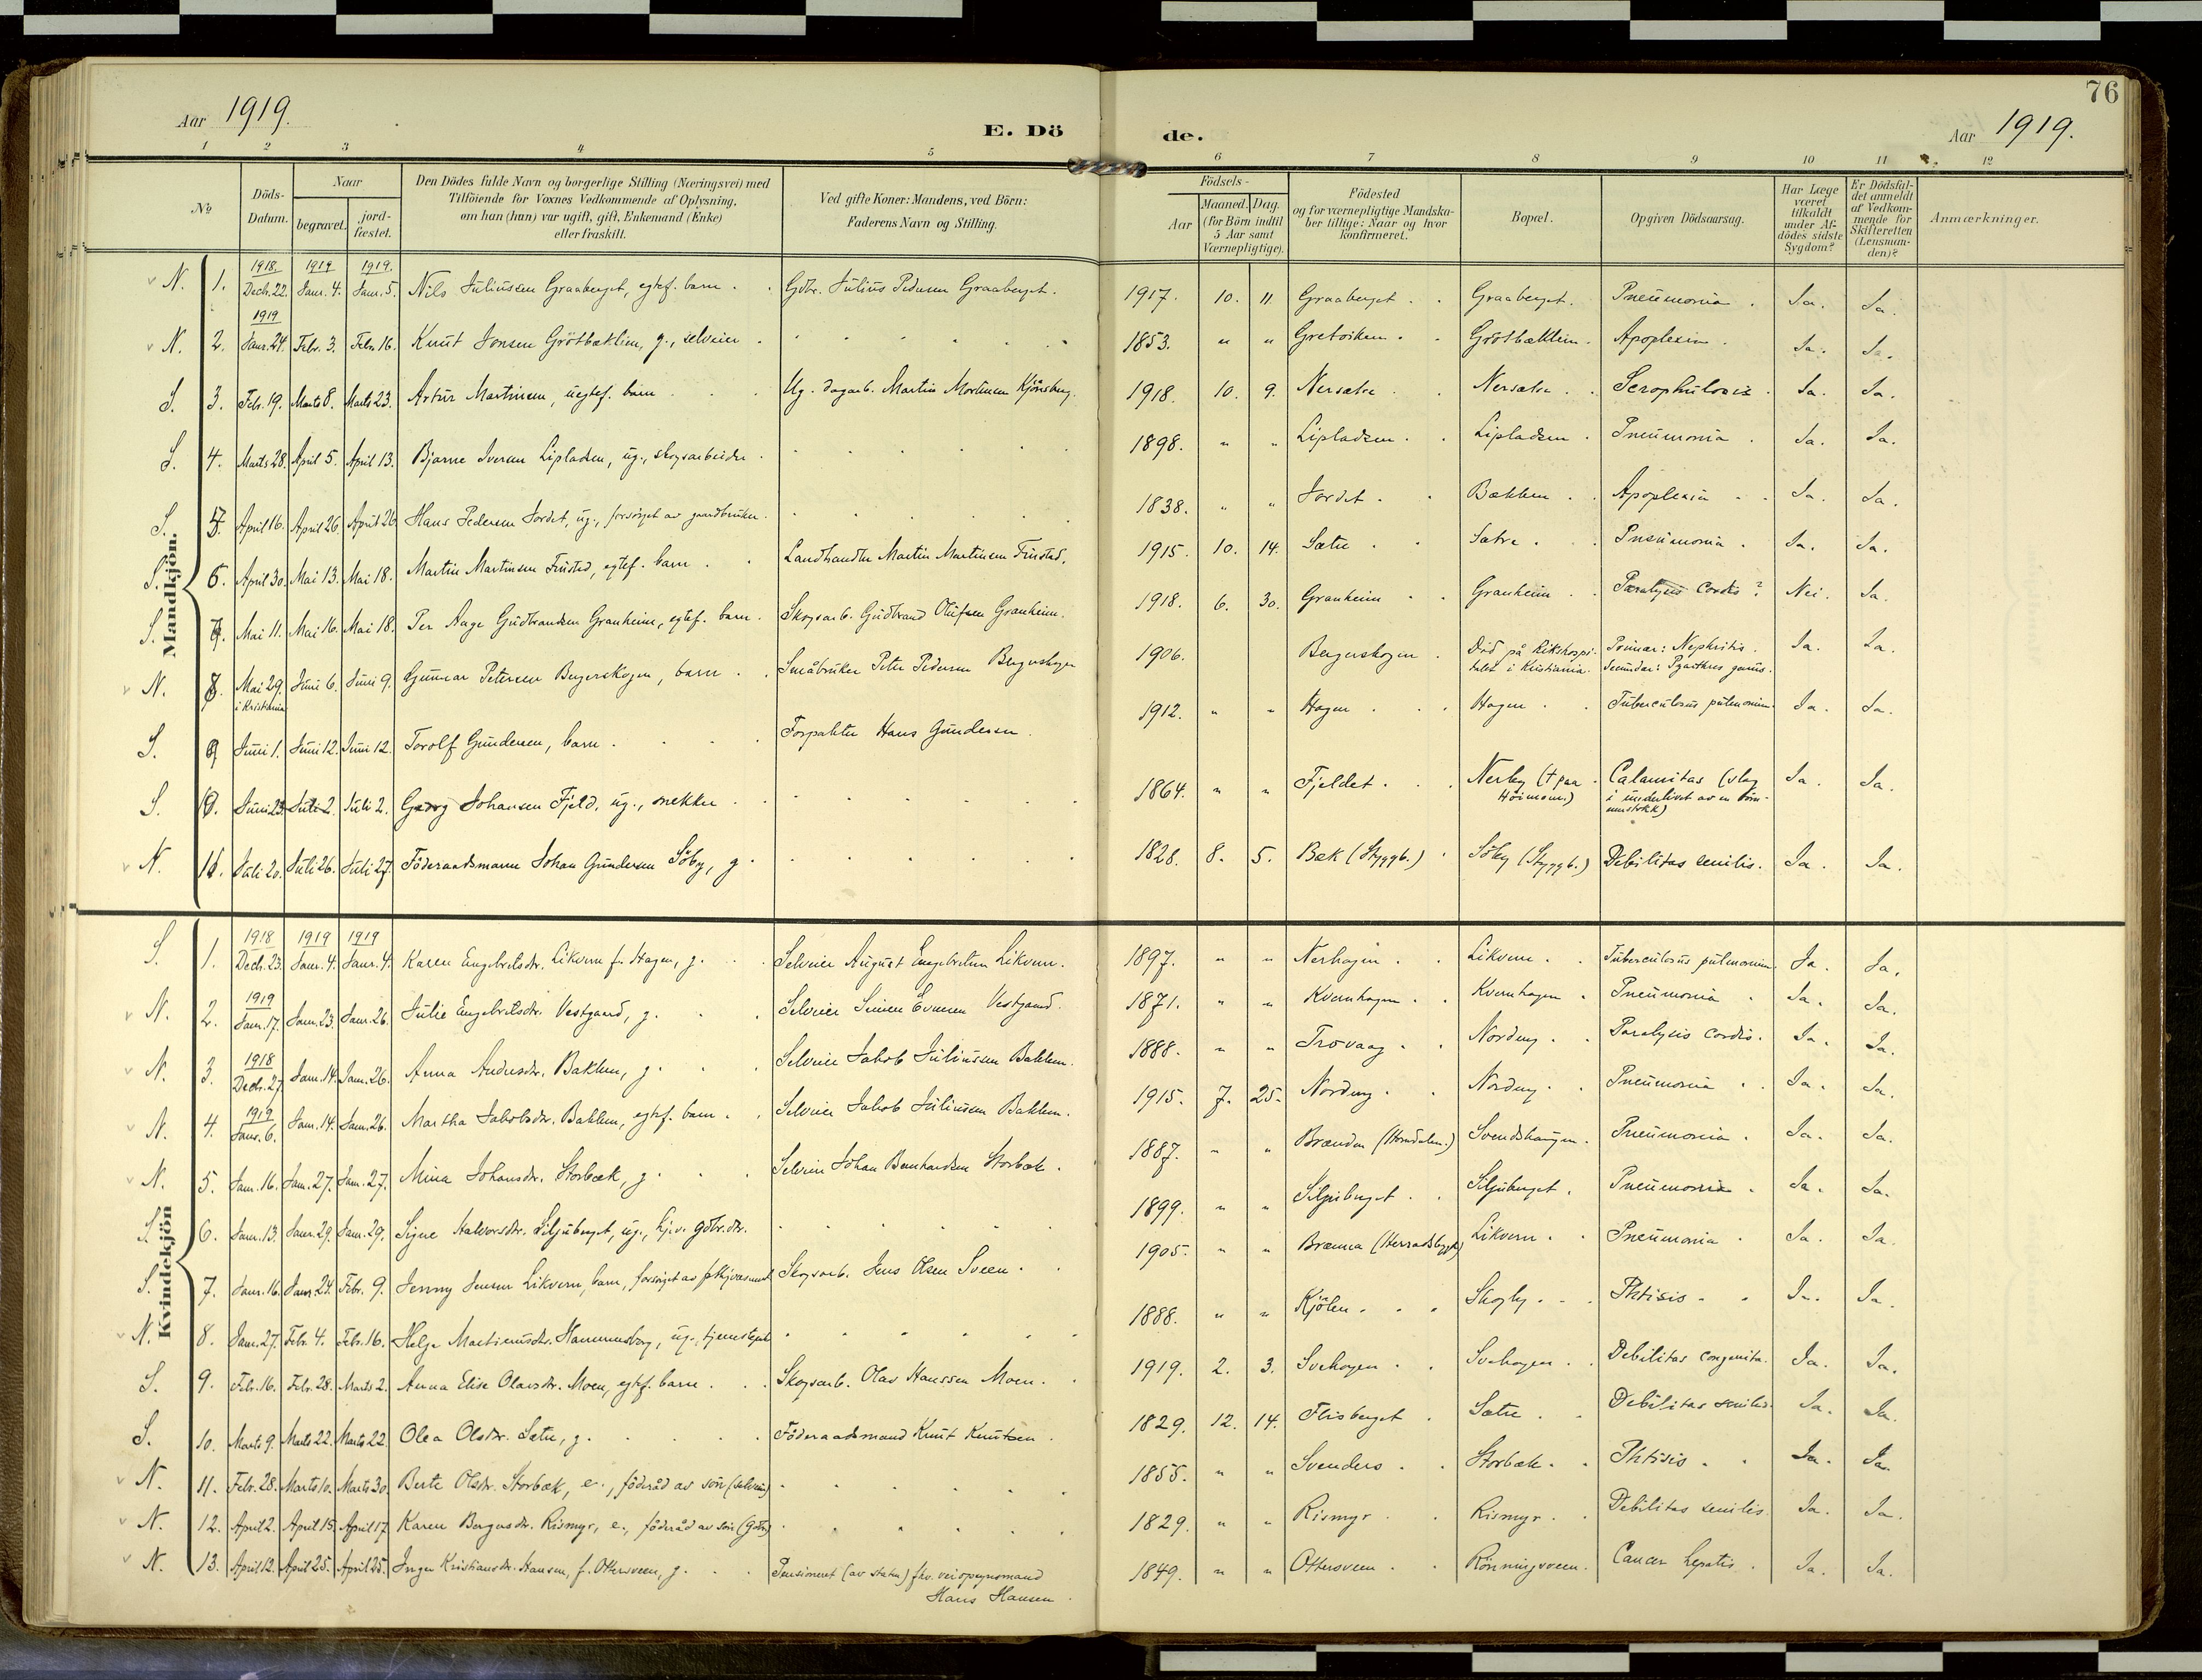 76
Aar 1919.
E. Dö de.
Aar 1919.
1 2 3 4 5 6 7 8 9 10 11 12
No
Döds-Datum.
Naar
begravet.
jord-fæstet.
Den Dödes fulde Navn og borgerlige Stilling (Næringsvei) med
Tilföiende for Voxnes Vedkommende af Oplysning,
om han (hun) var ugift, gift, Enkemand (Enke)
eller fraskilt.
Ved gifte Koner: Mandens, ved Börn:
Faderens Navn og Stilling.
Födsels-
Aar
Maaned. Dag.
(for Börn indtil
5 Aar samt
Værnepligtige).
Födested
og for værnepligtige Mandska-
ber tillige: Naar og hvor
konfirmeret.
Bopæl.
Opgiven Dödsaarsag.
Har Læge
været
tilkaldt
under Af-
dödes sidste
Sygdom?
Er Dödsfal-
det anmeldt
af Vedkom-
mende for
Skifteretten
(Lensman-
den)?
Anmærkninger.
Mandkjön.
1918. 1919 1919.
N. 1. Dech. 22. Janr. 4. Janr. 5. Nils Juliussen Graaberget, egtef. barn . . Gdbr. Julius Pedersen Graaberget. 1917. 10. 11. Graaberget . . Graaberget. Pneumonia . Ja. Ja.
1919
N. 2. Janr. 24. Febr. 3. Febr. 16. Knut Jonsen Grötbæklien, g., selveier . 1853. " " Grötbæklien. Apoplexia . Ja. Ja.
S. 3. Febr. 19. Marts 8. Marts 23. Artur Martinsen, uegtef. barn . . . Ug. dagarb. Martin Mortinsen Kjönsberg. 1918. 10. 9. Nersætre . . Nersætre . . Scrophulosis . Ja. Ja.
S. 4. Marts 28. April 5. April 13. Bjarne Iversen Lipladsen, ug., skogsarbeider . 1898. " " Lipladsen . . Lipladsen . Pneumonia . Ja. Ja.
S. 5. April 16. April 26. April 26. Hans Pedersen Jordet, ug., forsörget av gaardbruker. 1838. " " Jordet . . Bækken . . Apoplexia . . Ja. Ja.
S. 6. April 30. Mai 13. Mai 18. Martin Martinsen Trusted, egtef. barn . . Landhandler Martin Martinsen Trusted. 1915. 10. 14. Sætre . . Sætre . . Pneumonia . Ja. Ja.
S. 7. Mai 11. Mai 16. Mai 18. Per Aage Gudbrandsen Granheim, egtef. barn . Skogsarb. Gudbrand Olufsen Granheim. 1918. 6. 30. Granheim . . Granheim . . Paralysis cordis ? Nei. Ja.
N. 8. Mai 29. Juni 6. Juni 9. Gunnar Petersen Bergerskogen, barn . . Småbruker Peter Pedersen Bergerskogen 1906. Bergerskogen . Död på Rikshospi- Primær: Nephritis. Ja. Ja.
i Kristiania talet i Kristiania. Secundær: genus.
S. 9 Juni 1. Juni 12. Juni 12. Torolf Gundersen, barn . . . . Forpakter Hans Gundersen . 1912. " " Hagen . . . Hagen . . Tuberculosus pulmonum. Ja. Ja.
S. 10. Juni 23. Juli 2. Juli 2. Georg Johansen Fjeld, ug., snekker . . 1864. " " Fjeldet . . . Nerby († paa Calamitas (slag Ja. Ja.
Höimom.) i underlivet av en töm-
merstokk)
N. 11. Juli 20. Juli 26. Juli 27. Föderaadsmann Johan Gundersen Söby, g . 1828. 8. 5. Bæk (Styggb.) . Söby (Styggb.) Debilitas senilis. Ja. Ja.
Kvindekjön
1918 1919 1919
S. 1. Dech. 23. Janr. 4. Janr. 4. Karen Engebretsdr. Likvern f. Hagen, g. . . Selveier August Engebretsen Likvern. 1897. " " Nerhagen . . Likvern . . Tuberculosus pulmonum. Ja. Ja.
1919
N. 2. Janr. 17. Janr. 23. Janr. 26. Julie Engebretsdr. Vestgaard, g. . . Selveier Simen Evensen Vestgaard. 1871. " " Kvernhagen . . Kvernhagen . Pneumonia . Ja. Ja.
1918
N. 3. Dech. 27. Janr. 14. Janr. 26. Anna Andersdr. Bakken, g. . . Selveier Jakob Juliussen Bakken. 1888. " " Trovaag . . Norderg . . Paralysis cordis. Ja. Ja.
1919
N. 4. Janr. 6. Janr. 14. Janr. 26. Martha Jakobsdr. Bakken, egtef. barn . . Selveier Jakob Juliussen Bakken. 1915. 7. 25. Norderg . . Norderg . . Pneumonia . . Ja. Ja.
N. 5. Janr. 16. Janr. 27. Janr. 27. Mina Johansdr. Storbæk, g . . . Selveier Johan Bernhardsen Storbæk . 1887. " " Brænden (Horndalen.) Svendshaugen. Pneumonia . Ja. Ja.
S. 6. Janr. 13. Janr. 29. Janr. 29. Signe Halvorsdr. Siljuberget, ug., hj.v. gdbr.dtr. 1899. " " Siljuberget . . Siljuberget . Pneumonia . Ja. Ja.
S. 7. Janr. 16. Janr. 24. Febr. 9. Jenny Jensen Likvern, barn, forsörget av Skogsarb. Jens Olsen Sveen . . 1905. " " Brænna (Herradsbygd) Likvern . . Pneumonia . Ja. Ja.
N. 8. Janr. 27. Febr. 4. Febr. 16. Helga Martinusdr. Hammersberg, ug., tjenestepik 1888. " " Kjölen . . . Skogly . . . Phtisis . . Ja. Ja.
S. 9. Febr. 16. Febr. 28. Marts 2. Anna Elise Olavsdr. Moen, egtef. barn . . . Skogsarb. Olav Hanssen Moen . . 1919. 2. 3. Svehagen . . Svehagen . . Debilitas congenita. Ja. Ja.
S. 10. Marts 9. Marts 22. Marts 22. Olea Olsdr. Sætre, g. . . . . Föderaadsmand Knut Knutsen . 1829. 12. 14. Flisberget . Sætre . . Debilitas senilis. Ja. Ja.
N. 11. Febr. 28. Marts 10. Marts 30. Berte Olsdr. Storbæk, e., föderåd av sön (selveier) 1855. " " Svenders . . Storbæk . . Phtisis . . Ja. Ja.
N. 12. April 2. April 15. April 17. Karen Bergersdr. Rismyr, e., föderåd av sön (Gdbr.) 1829. " " Rismyr . . Rismyr . . Debilitas senilis. Ja. Ja.
N. 13. April 12. April 25. April 25. Inger Kristiansdr. Hansen, f. Ottersveen, g. . . Pensioneret (av staten) fhv. veiopsynsmand 1849. " " Ottersveen . . Rönningsveen. Cancer hepatis . Ja. Ja.
Hans Hansen .